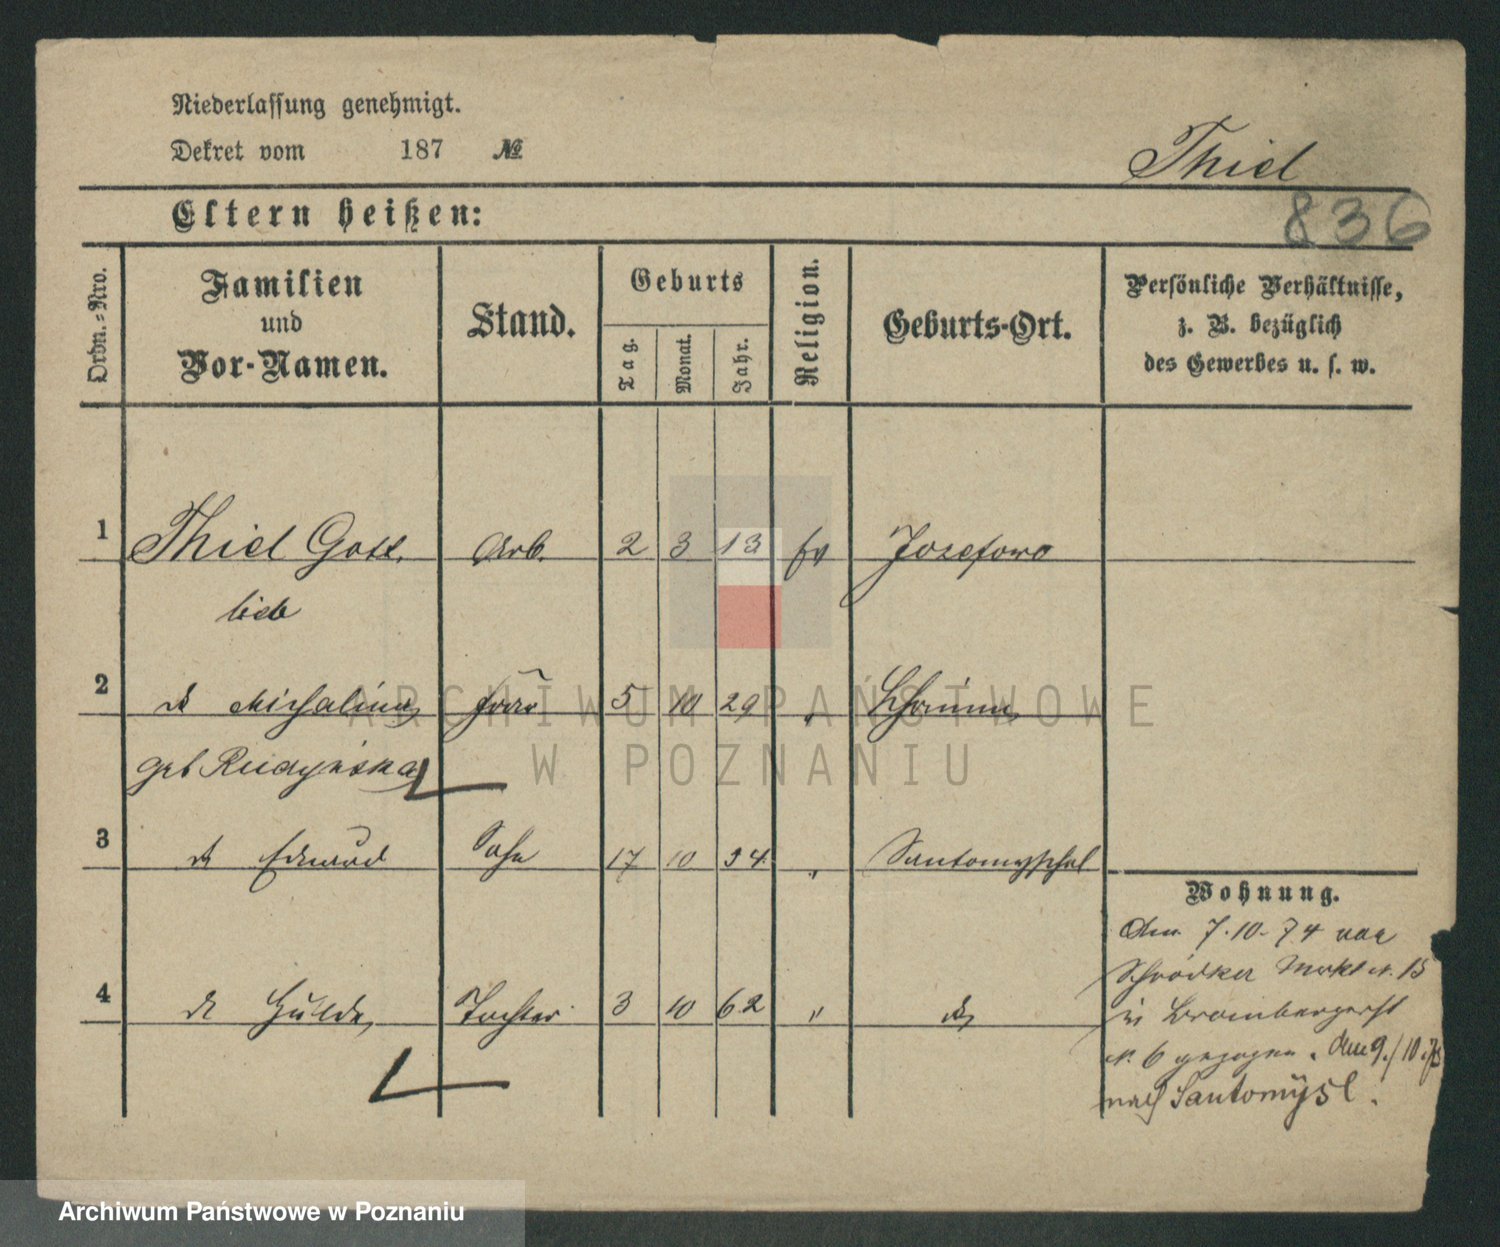 Niederlassung genehmigt.
Dekret vom 187 №
Thiel
836
Eltern heißen:
Ordn.-Nro.
Familien
und
Vor-Namen.
Stand.
Geburts
Tag.
Monat.
Jahr.
Religion.
Geburts-Ort.
Persönliche Verhältnisse,
z. B. bezüglich
des Gewerbes u. s. w.
1 Thiel Gott. Arb. 2 3 13 ev Josefowo
lieb
2 do Michalina Frau 5 10 29 " Schrimm
geb Rudzinska
3 do Eduard Sohn 17 10 54 " Santomyschel
4 do Hulda Tochter 3 10 62 " do
Wohnung.
Am 7.10.74 von
Schrodker Markt N. 15
in Brombergerst
N. 6 gezogen. Am 9./10.75
nach Santomÿsl.
ARCHIWUM PAŃSTWOWE
W POZNANIU
Archiwum Państwowe w Poznaniu